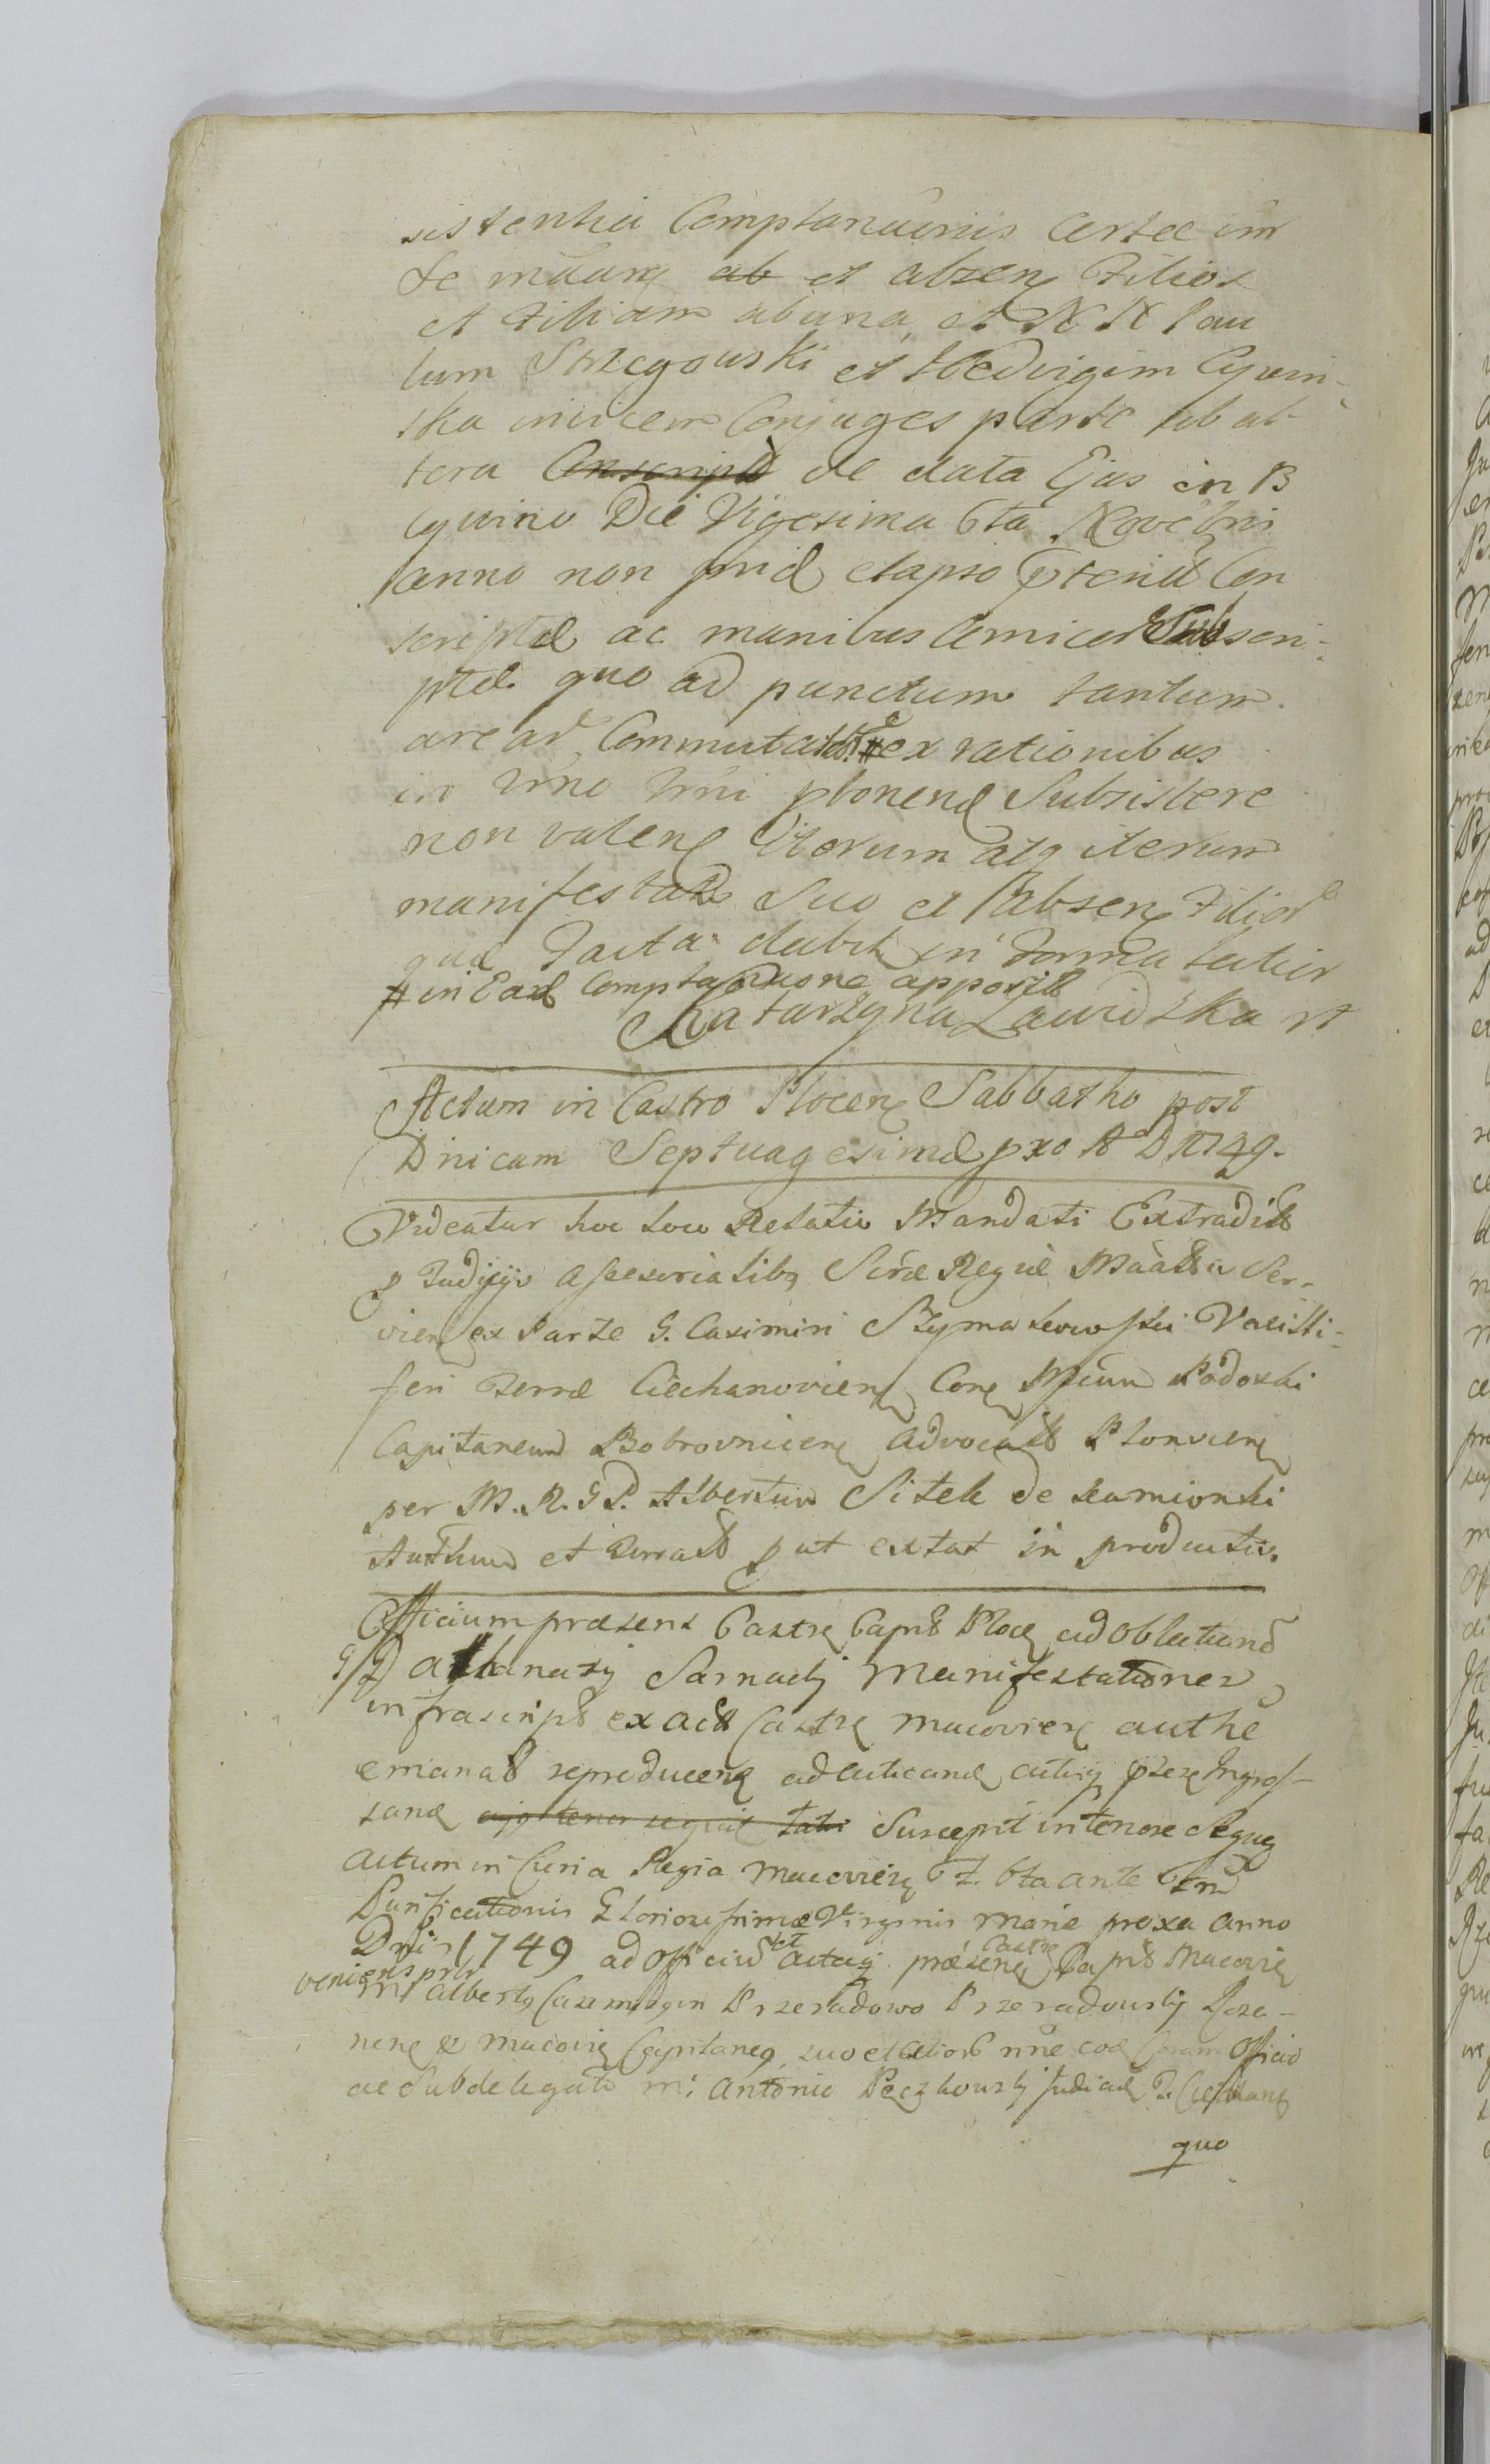 sistentia Complanaonis certae in
se maam ab et absen Filios
et Filiam ab una, et NN Pau
lum Strzegowski et Hedvigim Cywin-
ska invicem Conjuges parte ab al-
tera Conscript de data Ejus in B
Cywino Die Vigesima 6ta Novebris
anno non prid elapso Conscript
script ac manibus Amicor Subscri-
pt quo ad punctum tantum
arear Commutat # ex rationibus
in Uno Uni ponend Subsistere
non valen Iterum atq iterum
manifestat Suo et absen Filior
que Facta dabit in Forma latior
# in Ead Complanaone apposit
Katarzyna Zawidzka
Actum in Castro Plocen Sabbatho post
Dnicam Septuagesimae pxo Ao D 1749.
Videatur hoc loco Relatio Mandati Extradit
p Judicijs Assesorialibq Scrae Regiae Maattis Ser-
vien ex Parte G. Casimiri Szymakowski Vexilli-
feri Terrae Ciechanovien Con Mcum Podoski
Capitaneum Bobrovnicen Advocat Plonscen
per M. R. G P. Albertum Sitek de Kamionki
Authum et Iurrat put extat in productis.
Officium praesens Castr Capnt Ploc ad oblationem
G D Athanasij Sarnacki Manifestationes
infrascript ex act Castr Macovien authe
emanat reproducen ad acticand actisq psen Ingros-
sand cujq tenor sequit talis Suscepit in tenore Sequen
Actum in Curia Regia Macovien F. 6ta ante Fm
Purificationis Gloriosissimae Virginis Mariae proxa Anno
Dni 1749 ad officium et acta praesen Castr Capnt Macovien
veniens psnlr M Albertq Casimirq in Przeradowo Przeradowski Roza-
nen & Macovien Capitaneq, suo et alior nne cor Coram Officio
ac Subdelegato M: Antonio Pęczkowski Judice T. Ciechan
quo